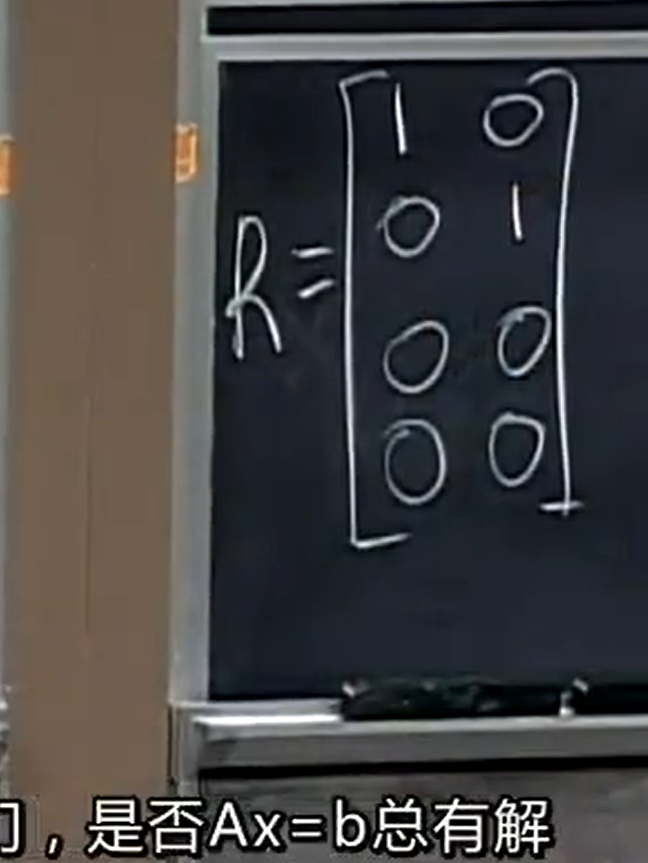 R = [ 1 0
0 1
0 0
0 0 ]
，是否Ax=b总有解